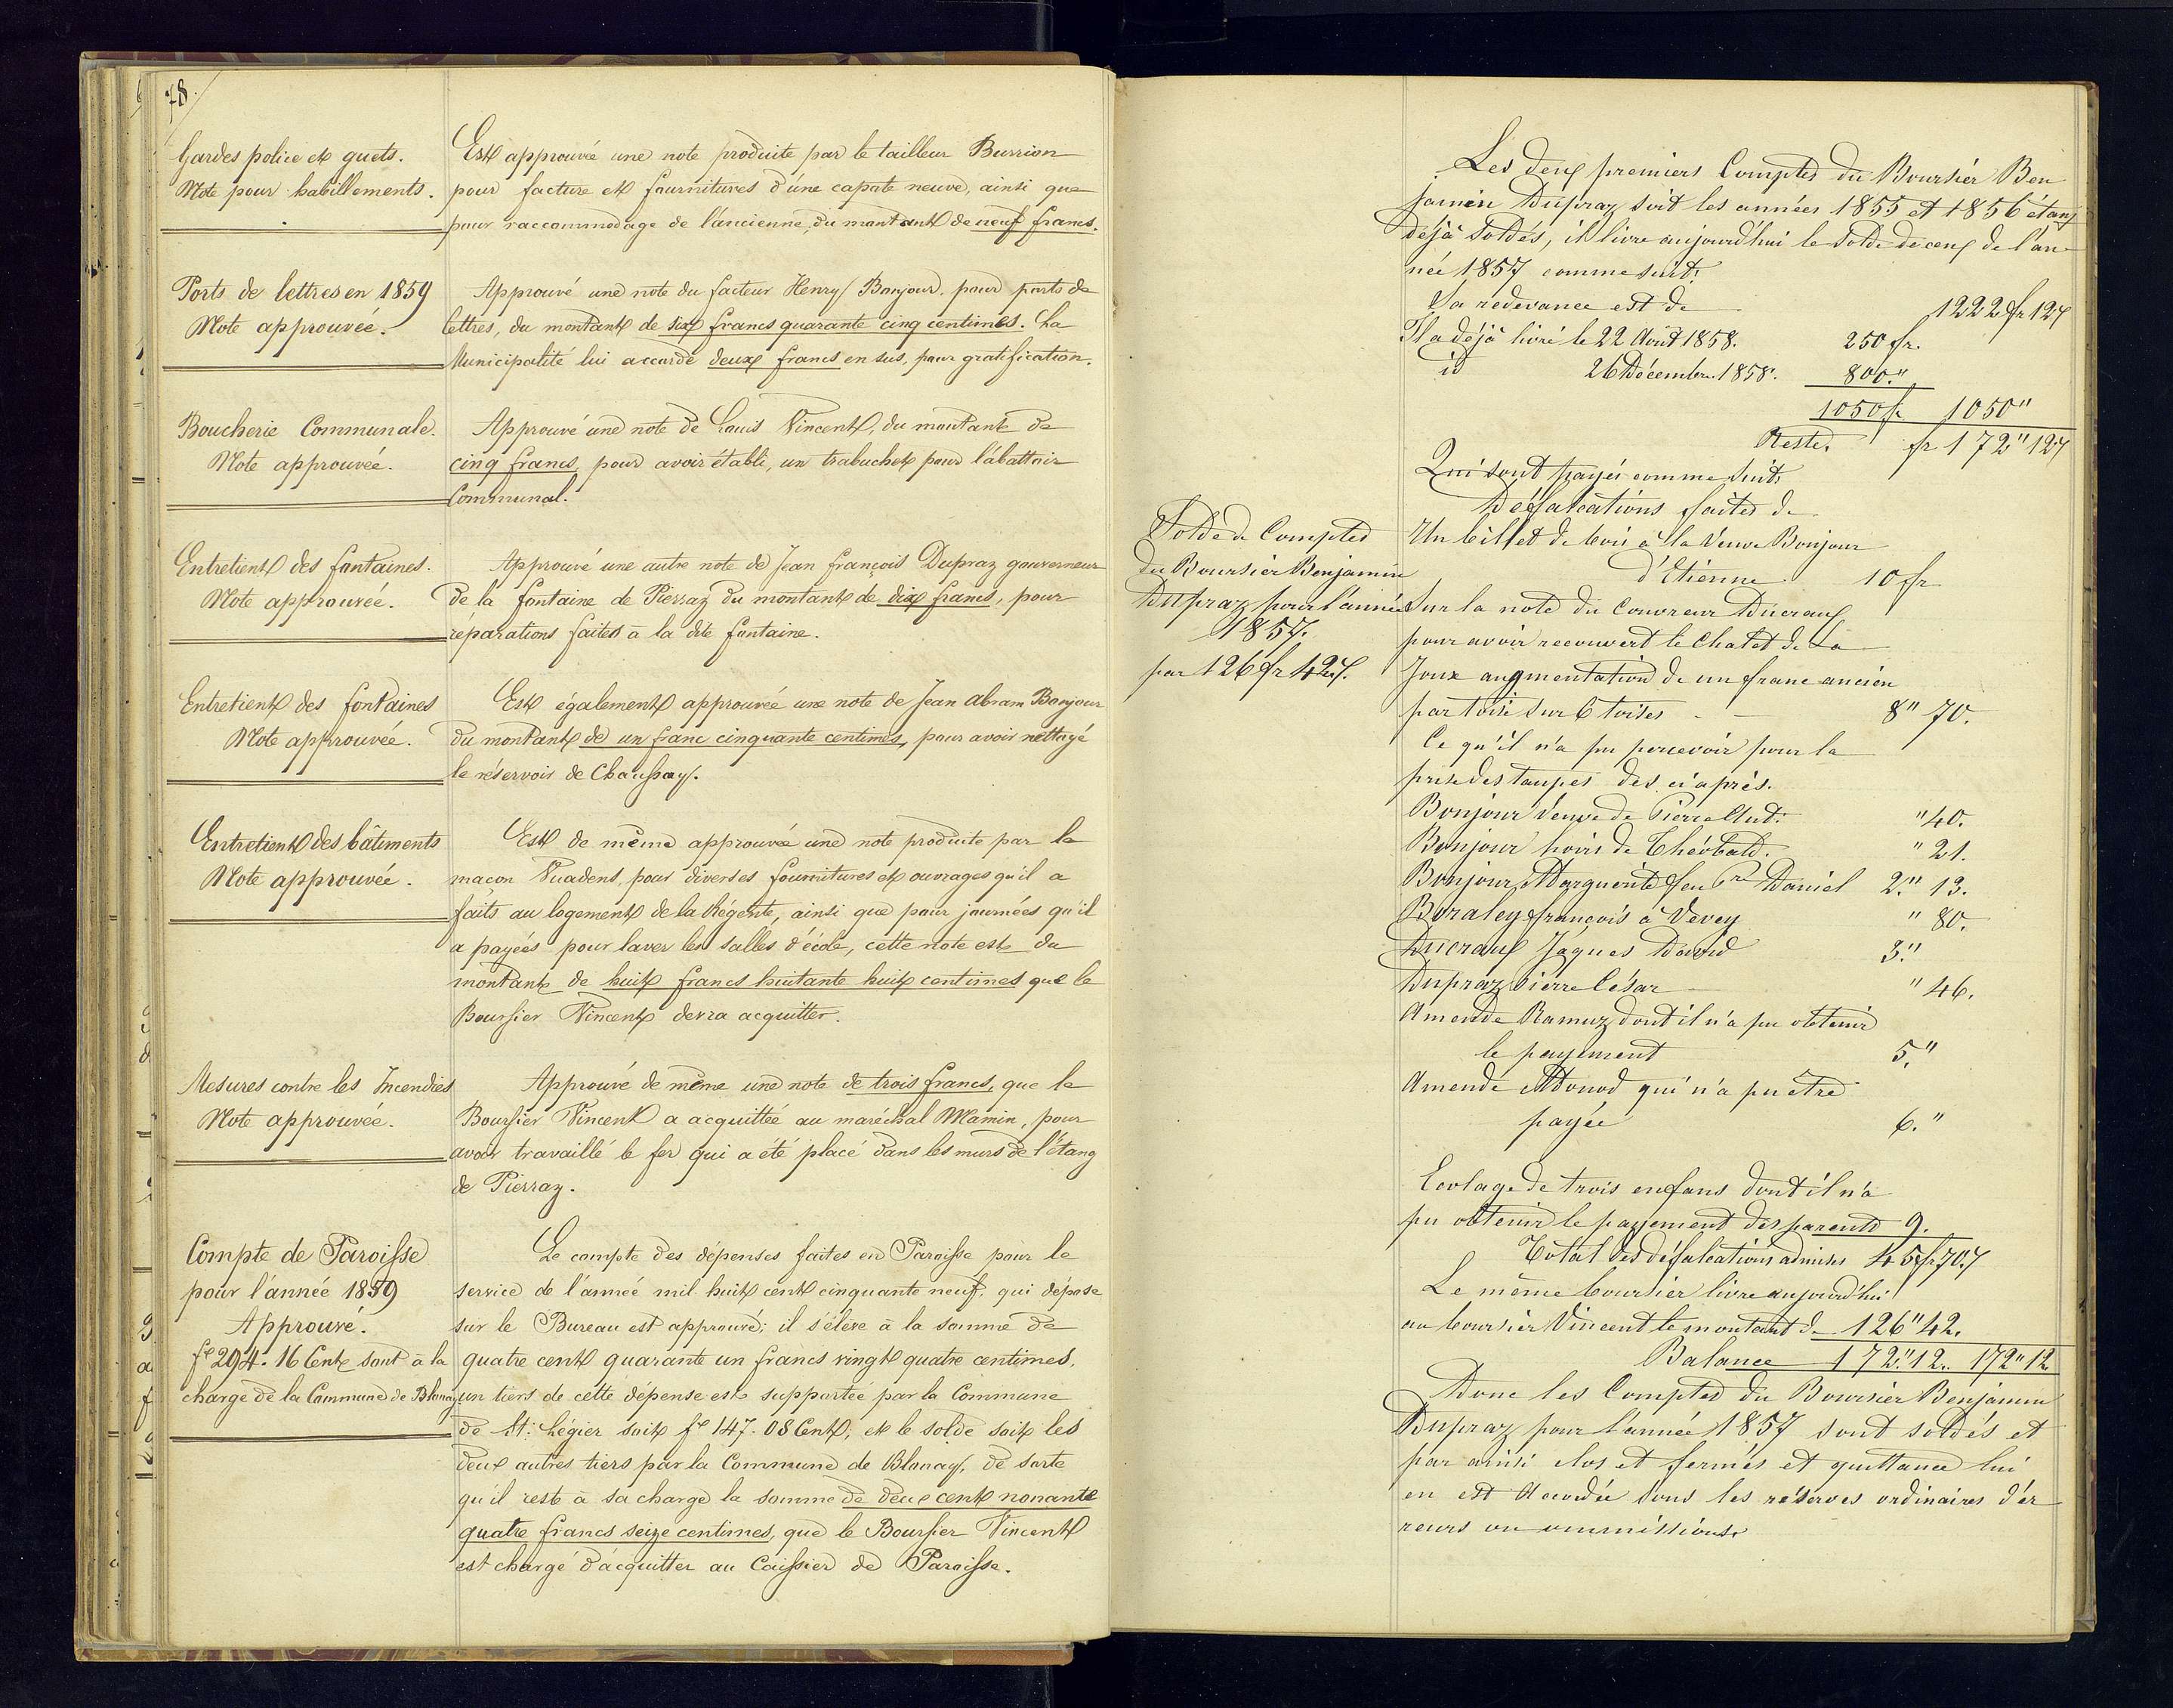 78.
Gardes police et guets.
Note pour habillements.
Est approuvée une note produite par le tailleur Burrion
pour facture et fournitures d'une capote neuve, ainsi que
pour raccommodage de l'ancienne, du montant de neuf francs.
Ports de lettres en 1859
Note approuvée.
Approuvé une note du facteur Henry Bonjour, pour ports de
lettres, du montant de six francs quarante cinq centimes. La
Municipalité lui accorde deux francs en sus, pour gratification.
Boucherie Communale.
Note approuvée.
Approuvé une note de Louis Vincent, du montant de
cinq francs, pour avoir établi, un trabuchet pour l'abattoir
Communal.
Entretient des fontaines.
Note approuvée.
Approuvé une autre note de Jean François Dupraz gouverneur
de la fontaine de Pierraz du montant de dix francs, pour
réparations faites à la dite fontaine.
Entretient des fontaines
Note approuvée.
Est également approuvée une note de Jean Abram Bonjour
du montant de un franc cinquante centimes, pour avoir nettoyé
le réservoir de Chaussay.
Entretient des bâtiments
Note approuvée.
Est de même approuvée une note produite par le
maçon Vuadens, pour diverses fournitures et ouvrages qu'il a
faits au logement de la Régente, ainsi que pour journées qu'il
a payées pour laver les salles d'école, cette note est du
montant de huit francs huitante huit centimes que le
Boursier Vincent devra acquitter.
Mesures contre les Incendies
Note approuvée.
Approuvé de même une note de trois francs, que le
Boursier Vincent a acquittée au maréchal Mamin, pour
avoir travaillé le fer qui a été placé dans les murs de l'étang
de Pierraz.
Compte de Paroisse
pour l'année 1859
Approuvé.
fs 294. 16 Cent sont à la
charge de la Commune de Blonay
Le compte des dépenses faites en Paroisse pour le
service de l'année mil huit cent cinquante neuf, qui dépose
sur le Bureau est approuvé; il s'élève à la somme de
quatre cent quarante un francs vingt quatre centimes,
un tiers de cette dépense est supportée par la Commune
de St. Légier soit fs 147. 08 Cent; et le solde soit les
deux autres tiers par la Commune de Blonay, de sorte
qu'il reste à sa charge la somme de deux cent nonante
quatre francs seize centimes, que le Boursier Vincent
est chargé d'acquitter au Caissier de Paroisse.
Solde de Comptes
du Boursier Benjamin
Dupraz pour l'année
1857.
par 126 fr 42
Les deux premiers Comptes du Boursier Ben
jamin Dupraz soit les années 1855 et 1856 étant
déjà soldés, il livre aujourd'hui le solde de ceux de l'an
née 1857 comme suit,
Sa redevance est de 1222 fr 12
Il a déjà livré le 22 Août 1858. 250 fr.
id 26 Décembre 1858. 800."
1050 fr 1050"
Reste. fr 172" 12
Qui sont payés comme suit
Défalcations faites de
Un billet de bois à la Veuve Bonjour
d'Etienne 10 fr
Sur la note du Couvreur Ducraux
pour avoir recouvert le Chalet de La
Joux augmentation de un franc ancien
par toise sur 6 toises - - 8" 70.
Ce qu'il n'a pu percevoir pour la
prise des taupes des ci après.
Bonjour Veuve de Pierre Aud. " 40.
Bonjour hoirs de Théobald. " 21.
Bonjour Marguerite feu Daniel 2." 13.
Boraley françois à Vevey " 80.
Ducraux Jaques David 3."
Dupraz Pierre César " 46.
Amende Ramuz dont il n'a pu obtenir
le payement 5."
Amende Monod qui n'a pu être
payée 6."
Ecolage de trois enfans dont il n'a
pu obtenir le payement des parents 9.
Total des défalcations admises 45 fr 70
Le même boursier livre aujourd'hui
au boursier Vincent le montant de 126" 42.
Balance 172." 12. 172" 12.
Donc les Comptes du Boursier Benjamin
Dupraz pour l'année 1857 sont soldés et
par ainsi clos et fermés et quittance lui
en est Accordée sous les réserves ordinaires d'er
reurs ou ommissions.